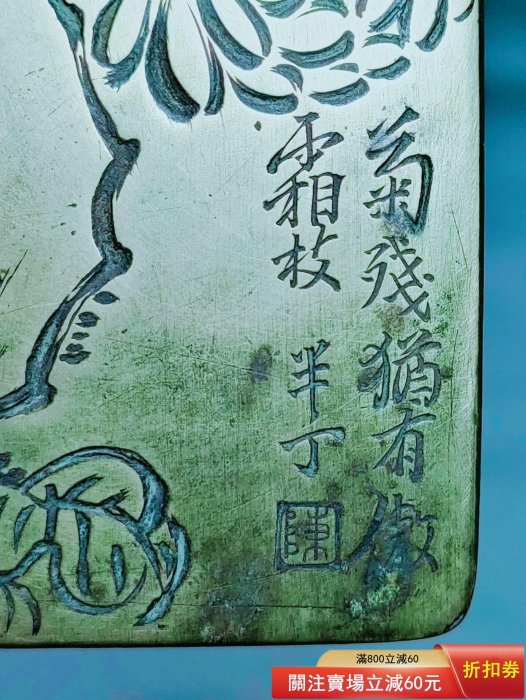 菊殘猶有傲
霜枝 半丁
陳
滿800立減60
關注賣場立減60元
折扣券